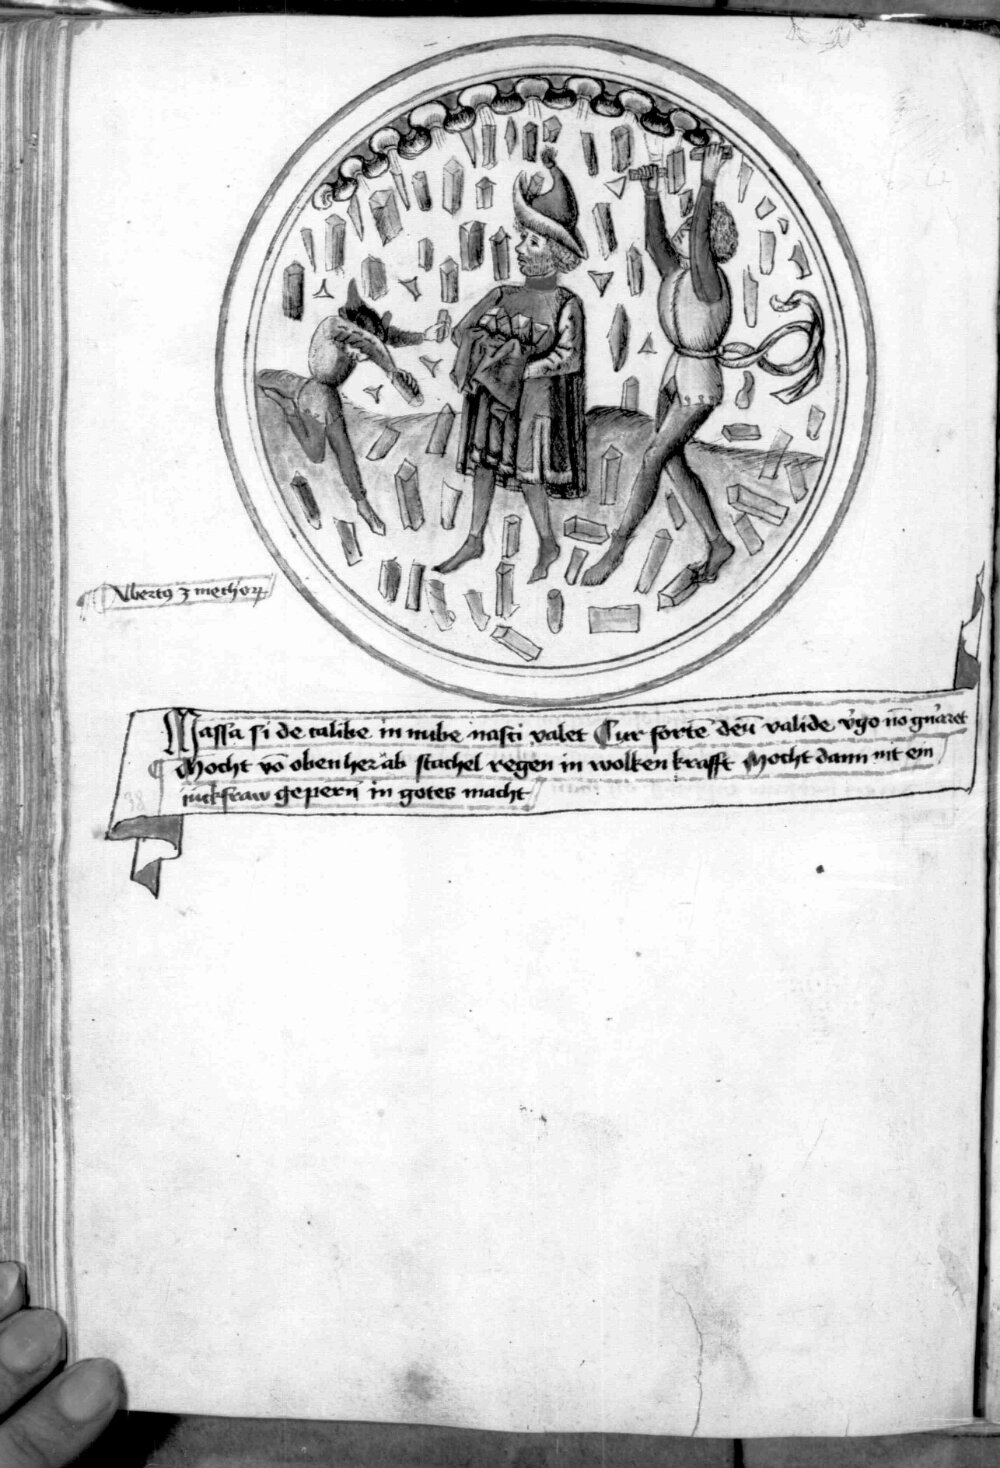 Albertꝰ ꝫ methorꝝ
Massa si de calibe in nube nasci valet Cur forte deū valide v̓go nō gn̓aret
Mocht vō oben her ab stachel regen in wolken krafft Mocht dann nit ein
iūckfraw gepern̄ in gotes macht
38